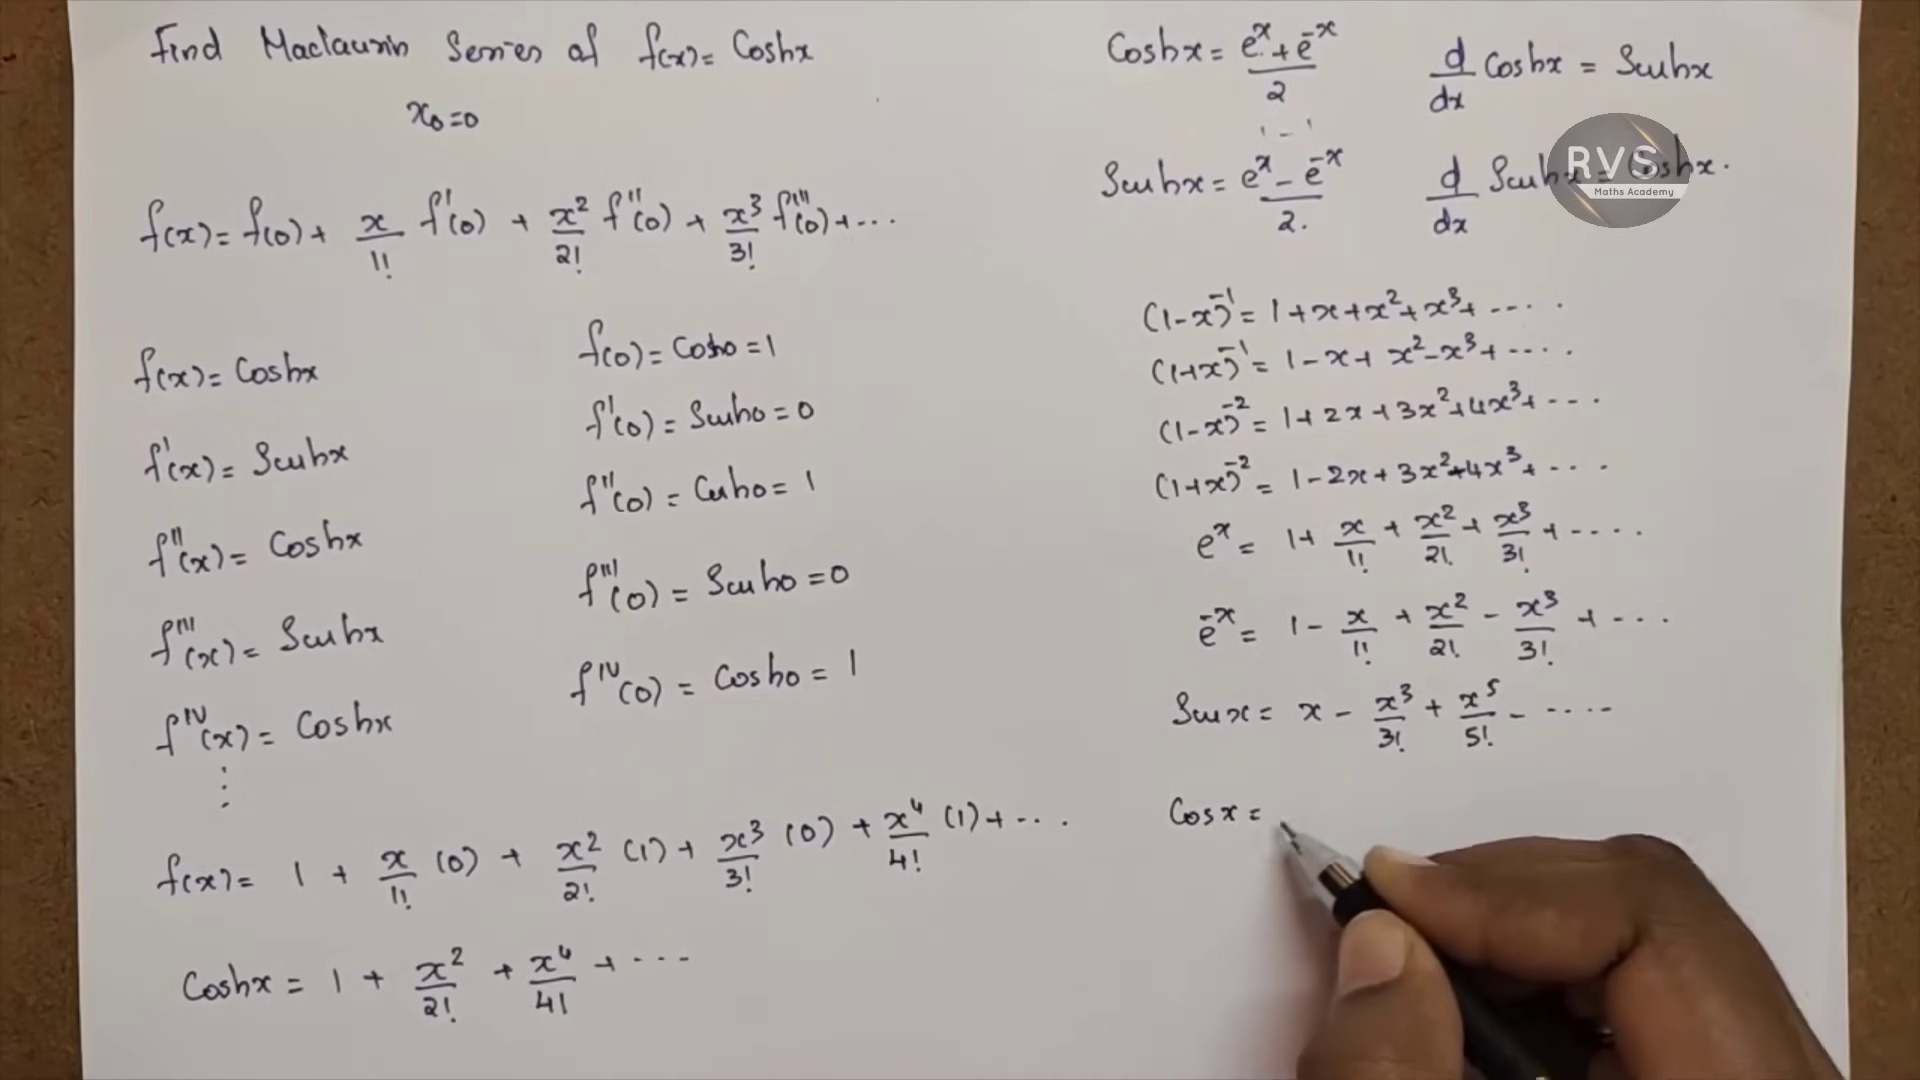 Find Maclaurin Series of f(x) = Coshx
x₀=0
f(x) = f(0) + x/1! f'(0) + x²/2! f''(0) + x³/3! f'''(0) + ...
f(x) = Coshx
f(0) = Cosho = 1
f'(x) = Sinhx
f'(0) = Sinho = 0
f''(x) = Coshx
f''(0) = Cosho = 1
f'''(x) = Sinhx
f'''(0) = Sinho = 0
f^IV(x) = Coshx
f^IV(0) = Cosho = 1
⋮
f(x) = 1 + x/1! (0) + x²/2! (1) + x³/3! (0) + x⁴/4! (1) + ...
Coshx = 1 + x²/2! + x⁴/4! + ...
Coshx = (e^x + e^-x)/2
d/dx Coshx = Sinhx
Sinhx = (e^x - e^-x)/2.
d/dx Sinhx = Coshx.
RVS
Maths Academy
(1-x)^-1 = 1 + x + x² + x³ + ....
(1+x)^-1 = 1 - x + x² - x³ + ....
(1-x)^-2 = 1 + 2x + 3x² + 4x³ + ...
(1+x)^-2 = 1 - 2x + 3x² - 4x³ + ...
e^x = 1 + x/1! + x²/2! + x³/3! + ....
e^-x = 1 - x/1! + x²/2! - x³/3! + ...
Sinx = x - x³/3! + x⁵/5! - ....
Cosx =